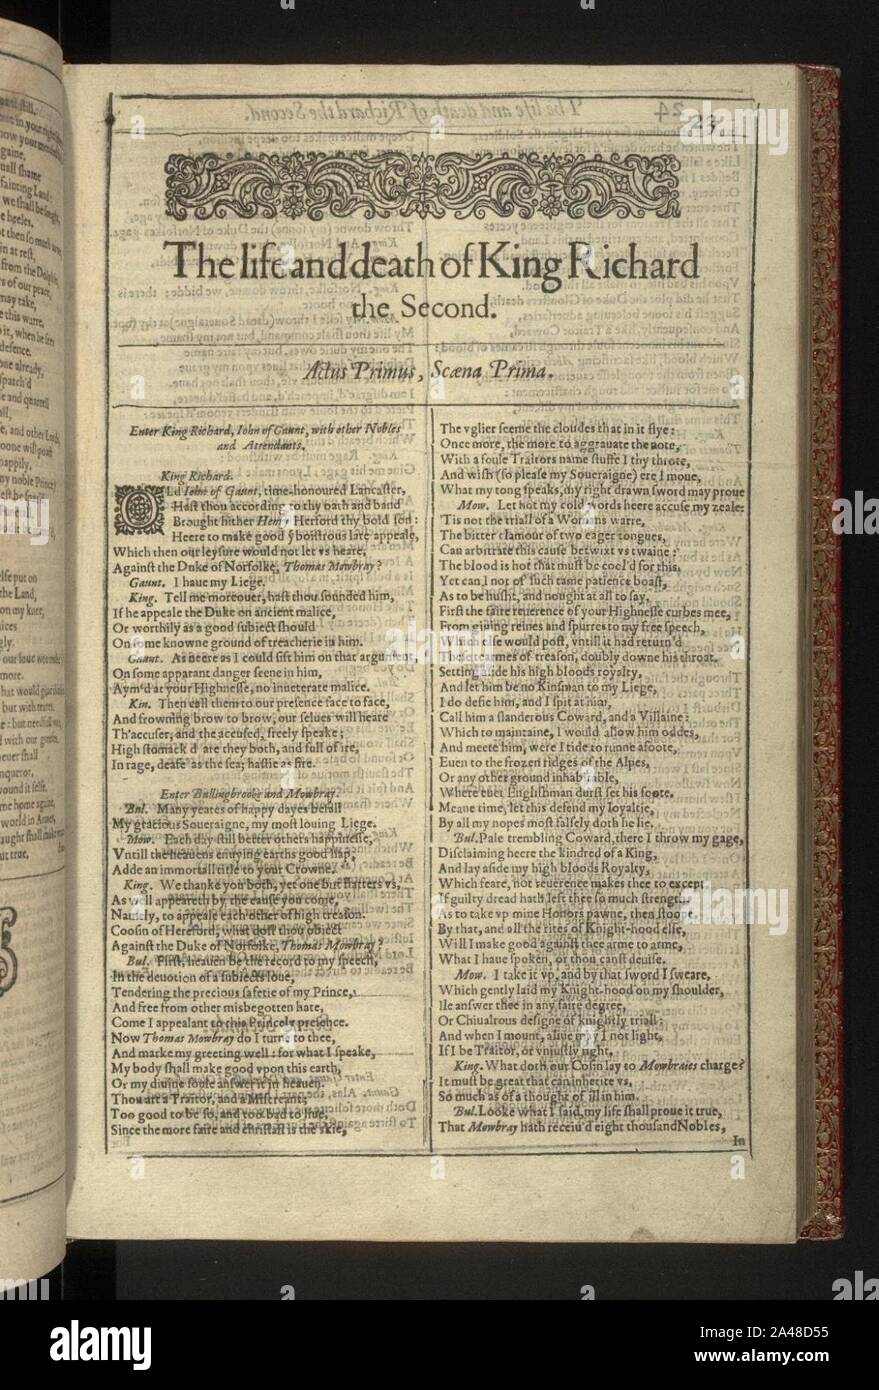 23
The life and death of King Richard
the Second.
Actus Primus, Scæna Prima.
Enter King Richard, Iohn of Gaunt, with other Nobles
and Attendants.
King Richard.
OLd Iohn of Gaunt, time-honoured Lancaster,
Hast thou according to thy oath and band
Brought hither Henry Herford thy bold son:
Heere to make good yͤ boistrous late appeale,
Which then our leysure would not let vs heare,
Against the Duke of Norfolke, Thomas Mowbray?
Gaunt. I haue my Liege.
King. Tell me moreouer, hast thou sounded him,
If he appeale the Duke on ancient malice,
Or worthily as a good subiect should
On some knowne ground of treacherie in him.
Gaunt. As neere as I could sift him on that argument,
On some apparant danger seene in him,
Aym'd at your Highnesse, no inueterate malice.
Kin. Then call them to our presence face to face,
And frowning brow to brow, our selues will heare
Th'accuser, and the accused, freely speake;
High stomack'd are they both, and full of ire,
In rage, deafe as the sea; hastie as fire.
Enter Bullingbrooke and Mowbray.
Bul. Many yeares of happy dayes befall
My gracious Soueraigne, my most louing Liege.
Mow. Each day still better others happinesse,
Vntill the heauens enuying earths good hap,
Adde an immortall title to your Crowne.
King. We thanke you both, yet one but flatters vs,
As well appeareth by the cause you come,
Namely, to appeale each other of high treason.
Coosin of Hereford, what dost thou obiect
Against the Duke of Norfolke, Thomas Mowbray?
Bul. First, heauen be the record to my speech,
In the deuotion of a subiects loue,
Tendering the precious safetie of my Prince,
And free from other misbegotten hate,
Come I appealant to this Princely presence.
Now Thomas Mowbray do I turne to thee,
And marke my greeting well: for what I speake,
My body shall make good vpon this earth,
Or my diuine soule answer it in heauen.
Thou art a Traitor, and a Miscreant;
Too good to be so, and too bad to liue,
Since the more faire and christall is the skie,
The vglier seeme the cloudes that in it flye:
Once more, the more to aggrauate the note,
With a foule Traitors name stuffe I thy throte,
And wish (so please my Soueraigne) ere I moue,
What my tong speaks, my right drawn sword may proue
Mow. Let not my cold words heere accuse my zeale:
'Tis not the triall of a Womans warre,
The bitter clamour of two eager tongues,
Can arbitrate this cause betwixt vs twaine:
The blood is hot that must be cool'd for this.
Yet can I not of such tame patience boast,
As to be husht, and nought at all to say.
First the faire reuerence of your Highnesse curbes mee,
From giuing reines and spurres to my free speech,
Which else would post, vntill it had return'd
These tearmes of treason, doubly downe his throat.
Setting aside his high bloods royalty,
And let him be no Kinsman to my Liege,
I do defie him, and I spit at him,
Call him a slanderous Coward, and a Villaine:
Which to maintaine, I would allow him oddes,
And meete him, were I tide to runne afoote,
Euen to the frozen ridges of the Alpes,
Or any other ground inhabitable,
Where euer Englishman durst set his foote.
Meane time, let this defend my loyaltie,
By all my hopes most falsely doth he lie.
Bul. Pale trembling Coward, there I throw my gage,
Disclaiming heere the kindred of a King,
And lay aside my high bloods Royalty,
Which feare, not reuerence makes thee to except.
If guilty dread hath left thee so much strength,
As to take vp mine Honors pawne, then stoope.
By that, and all the rites of Knight-hood else,
Will I make good against thee arme to arme,
What I haue spoken, or thou canst deuise.
Mow. I take it vp, and by that sword I sweare,
Which gently laid my Knight-hood on my shoulder,
Ile answer thee in any faire degree,
Or Chiualrous designe of knightly triall:
And when I mount, aliue may I not light,
If I be Traitor, or vniustly fight.
King. What doth our Cosin lay to Mowbraies charge?
It must be great that can inherite vs,
So much as of a thought of ill in him.
Bul. Looke what I said, my life shall proue it true,
That Mowbray hath receiu'd eight thousand Nobles,
In
alamy
Image ID: 2A48D55
www.alamy.com